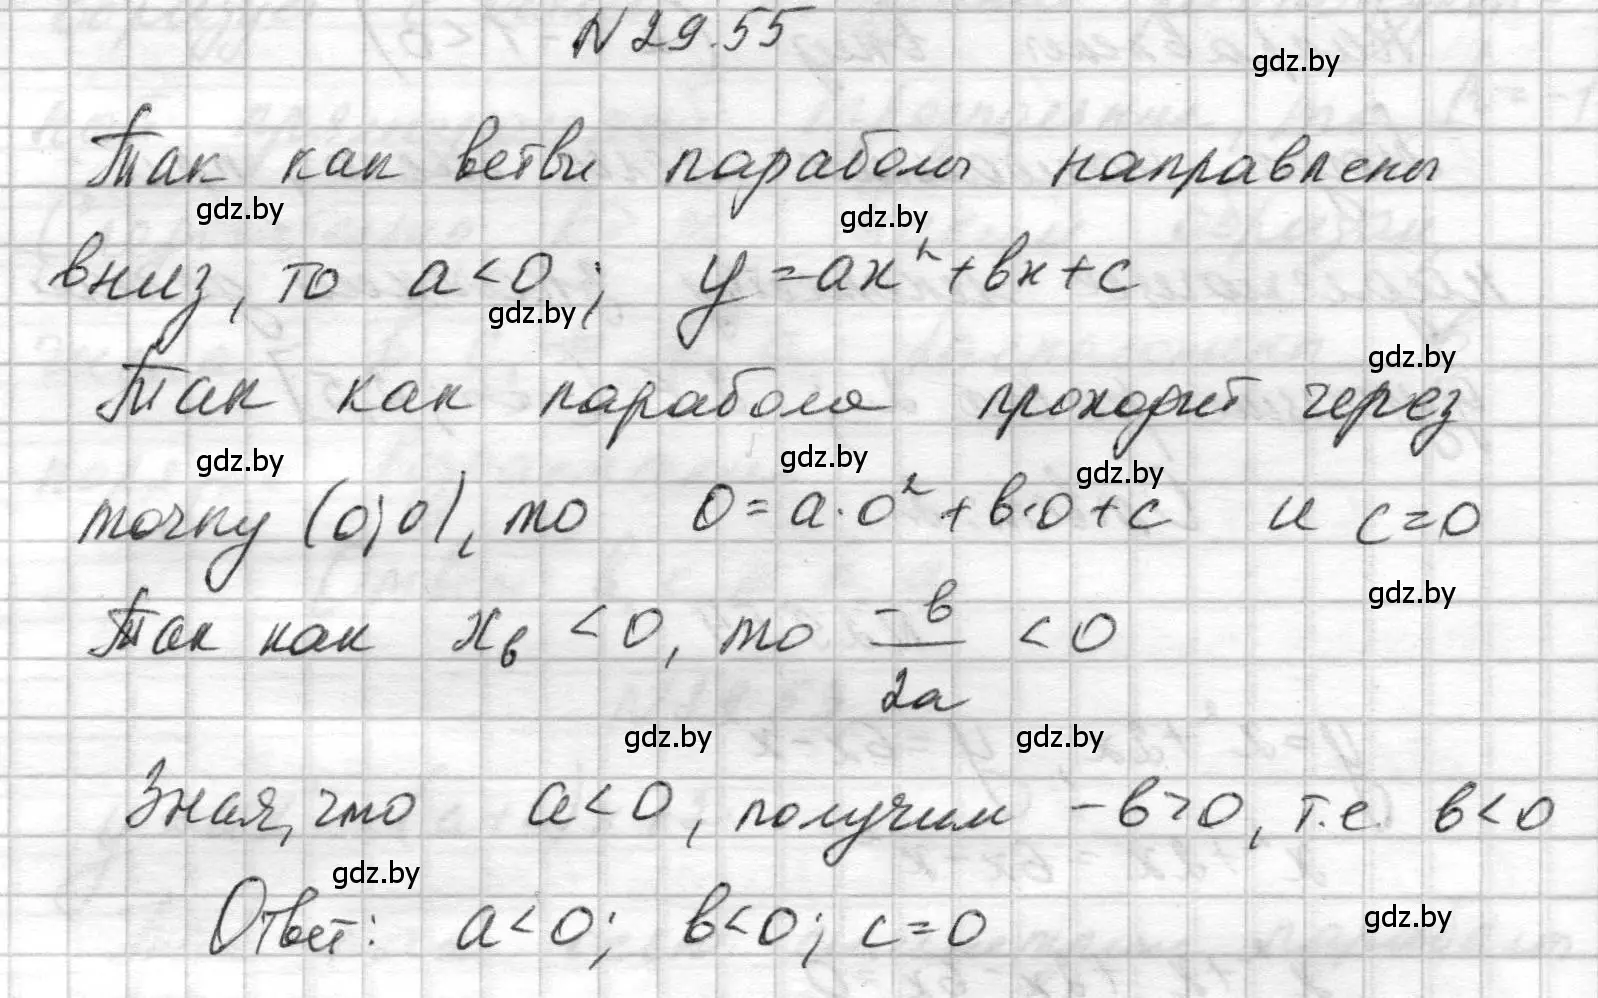 N 29.55
gdz.by
Так как ветви параболы направлены
gdz.by gdz.by
вниз, то a<0; y=ax²+вx+c
gdz.by
gdz.by
Так как парабола проходит через
gdz.by gdz.by gdz.by
точку (0;0), то 0=a·0²+в·0+c и c=0
gdz.by
Так как xв <0, то -в/2a <0
gdz.by gdz.by
Зная, что a<0, получим -в>0, т.е. в<0
gdz.by
gdz.by
Ответ: a<0; в<0; c=0